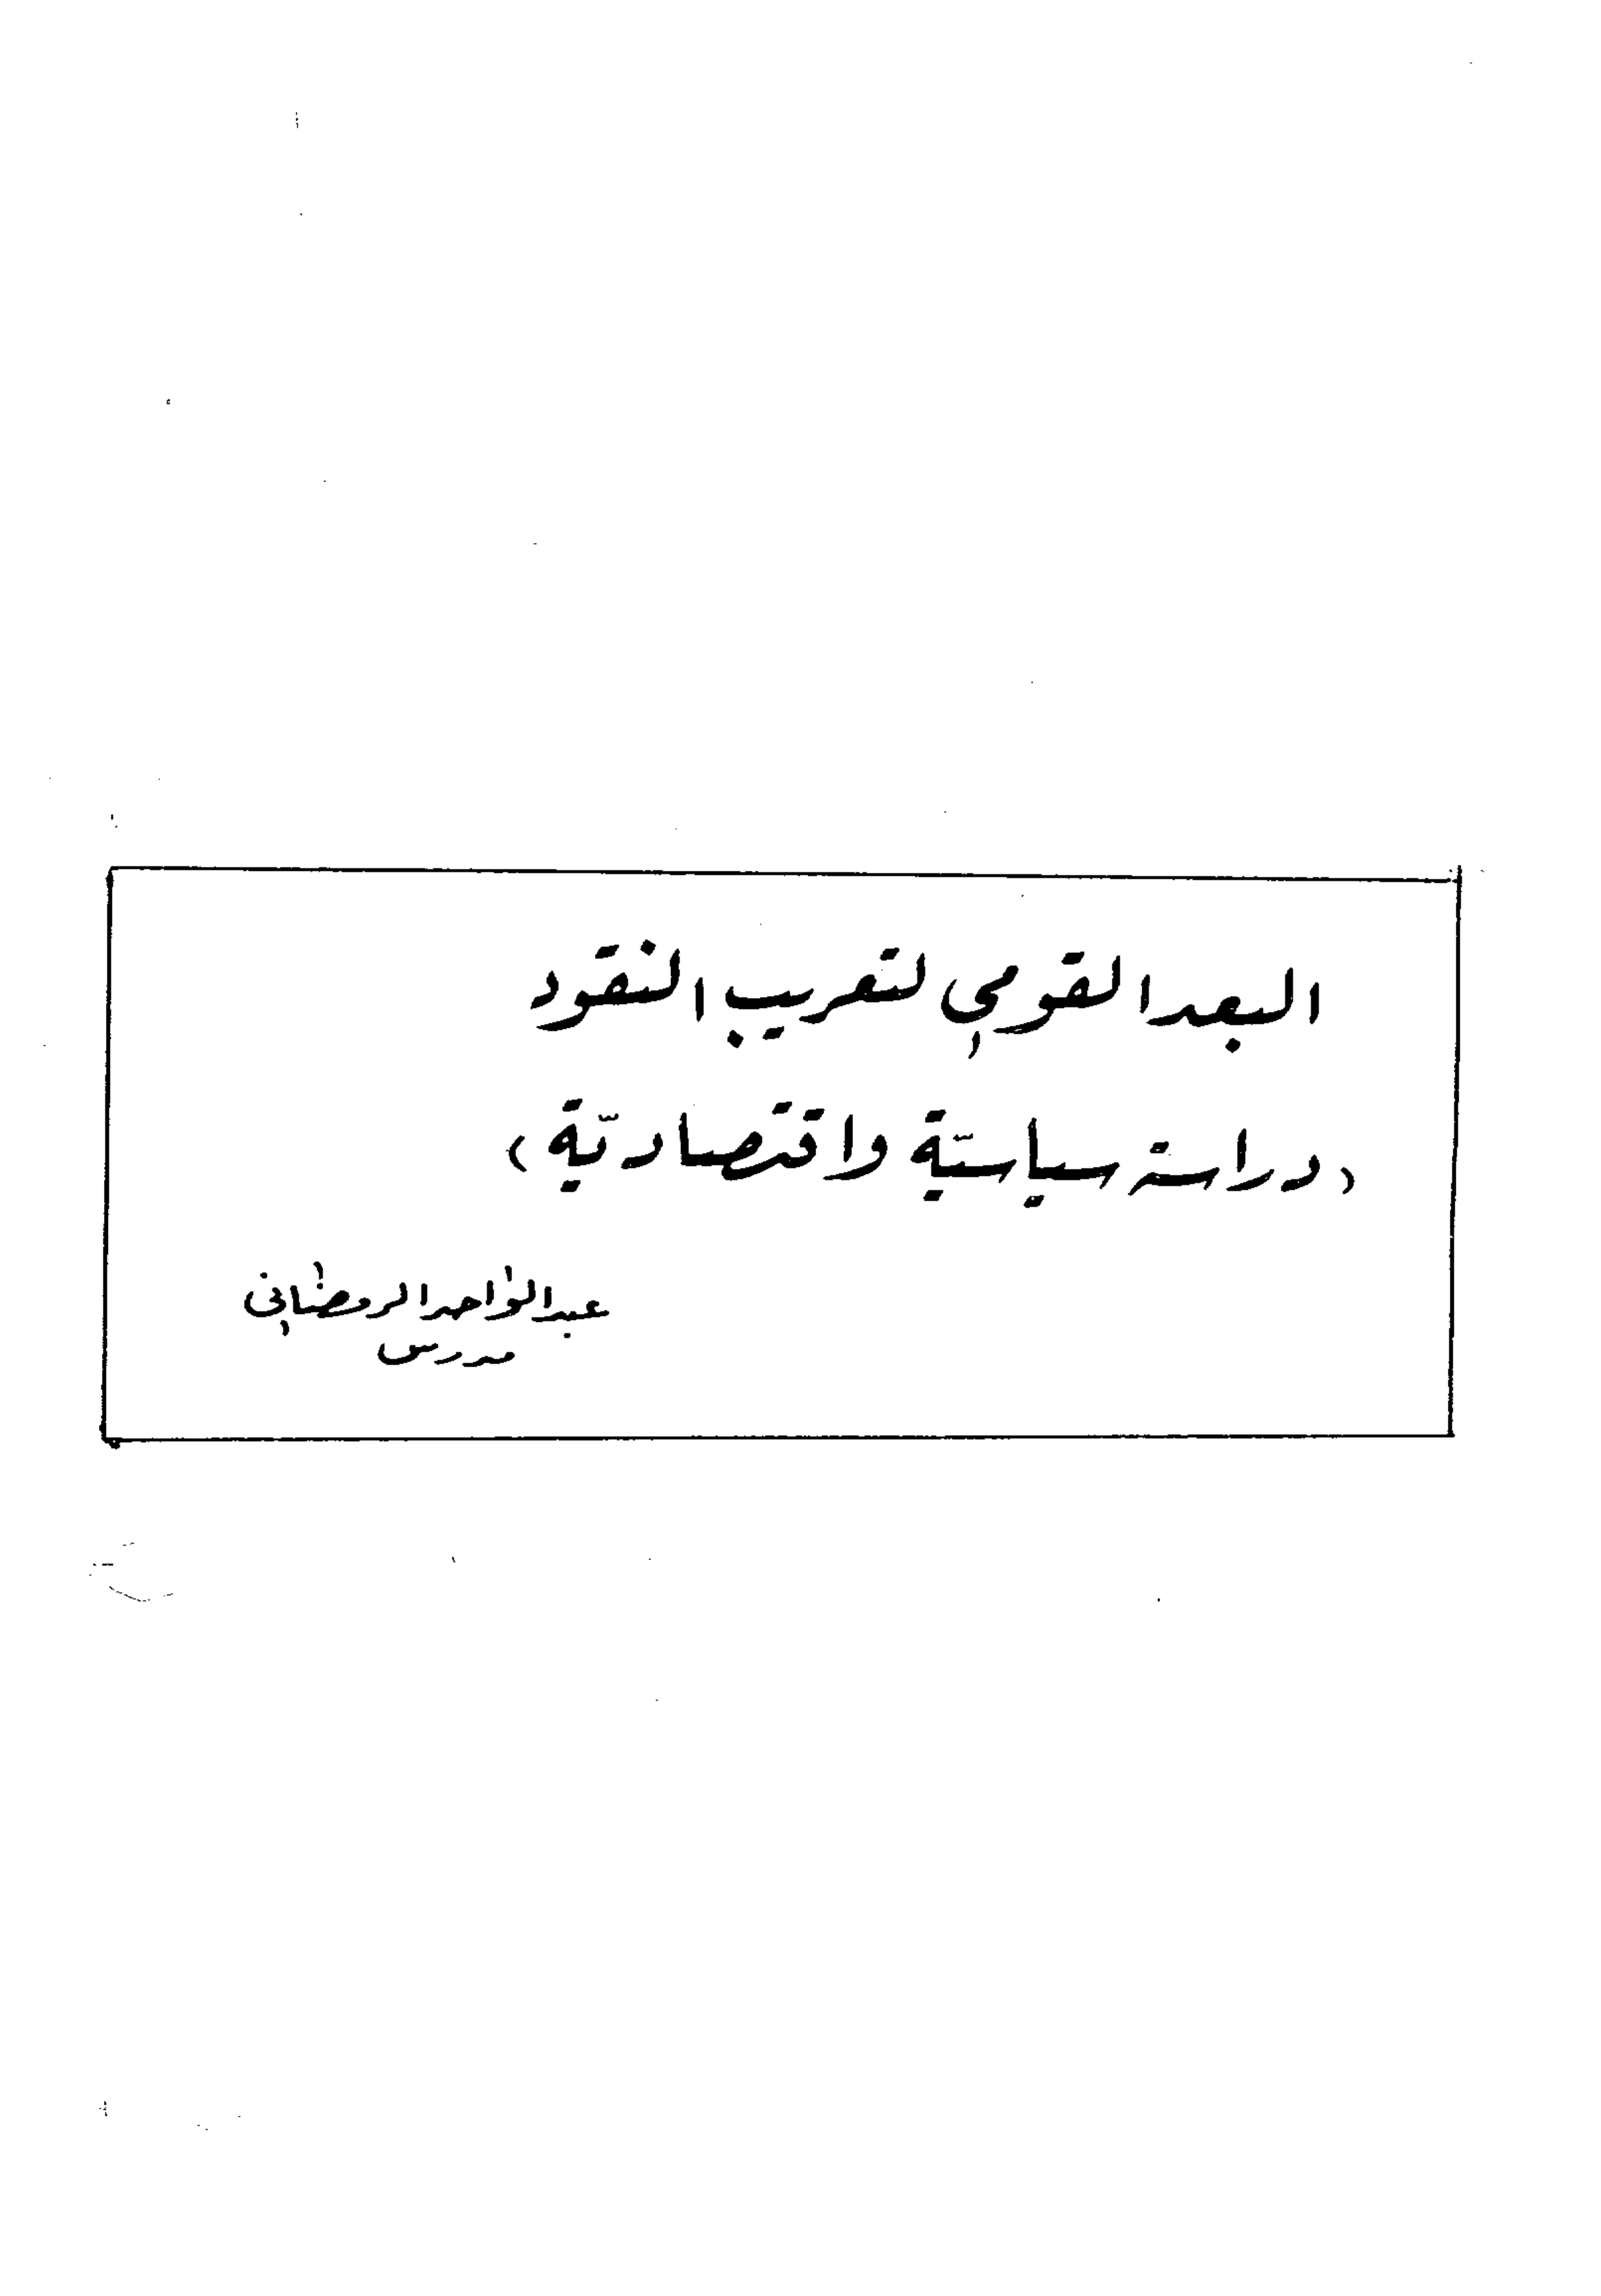 البعد القومي لتعريب النقود
(دراسة سياسيّة واقتصاديّة)
عبد الواحد الرمضاني
مدرس